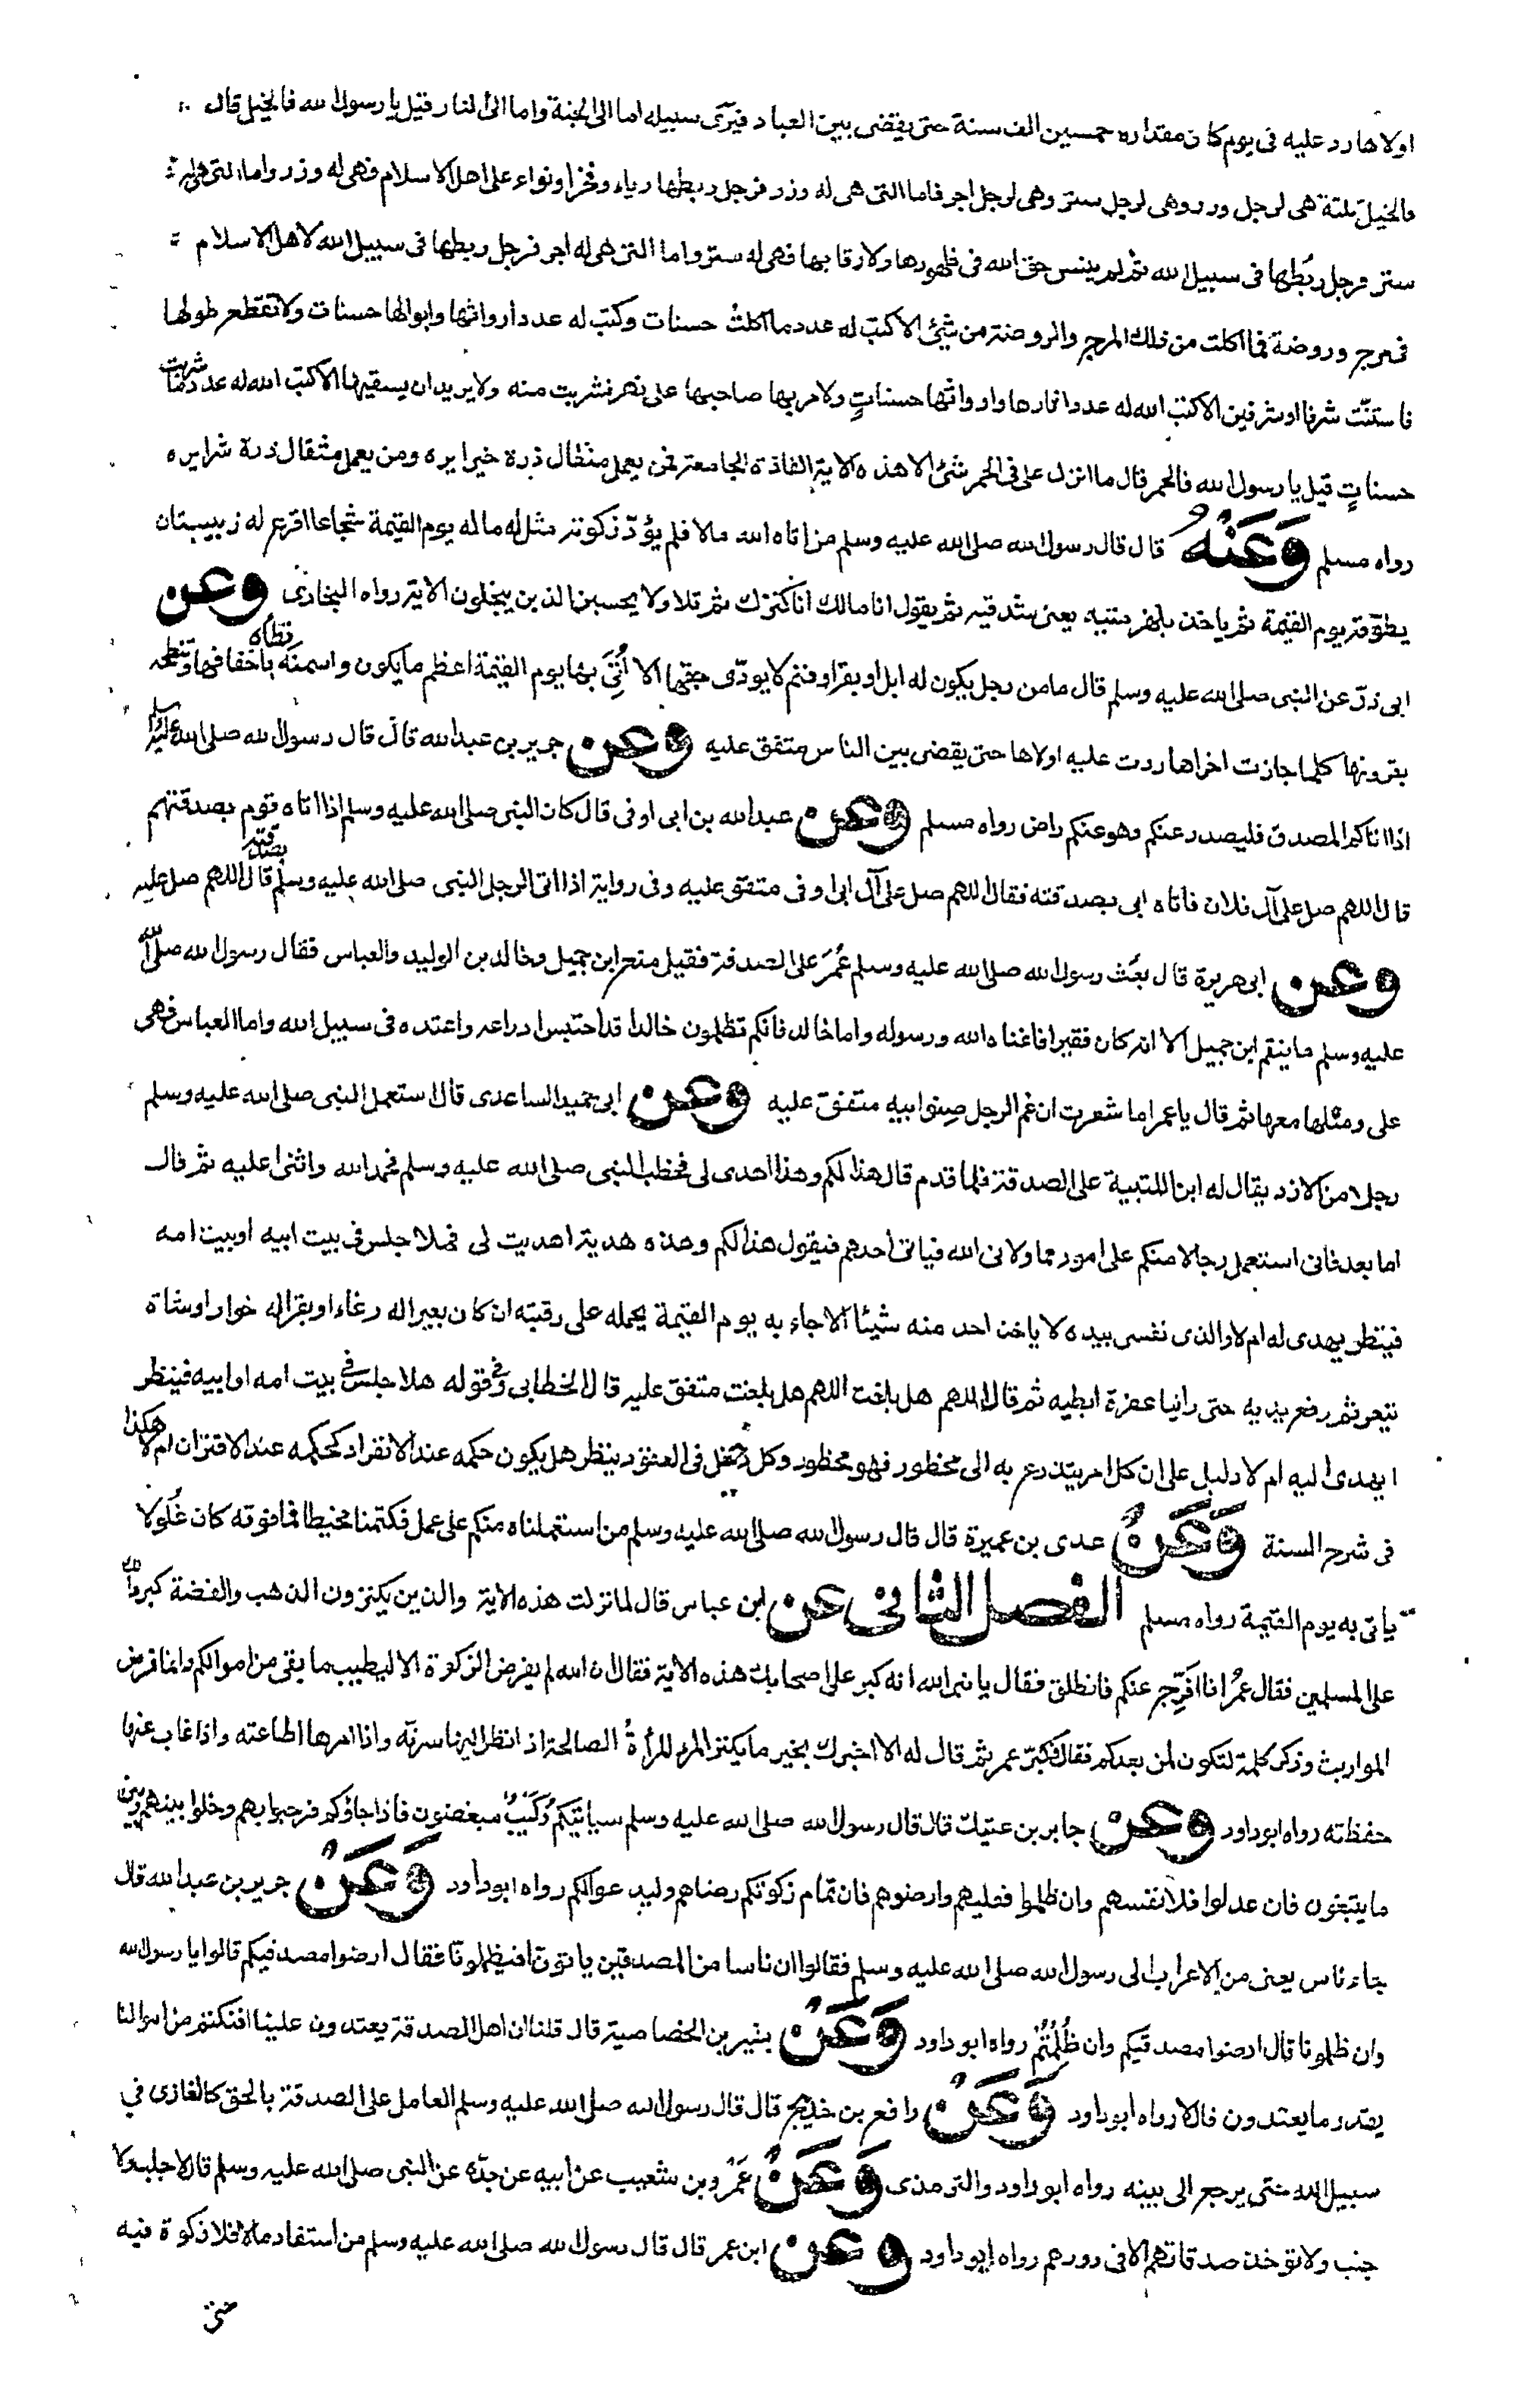 اولاها رد عليه فى يوم كان مقداره خمسين الف سنة حتى يقضى بين العباد فيرى سبيله اما الى الجنة واما الى النار قيل يا رسول الله فالخيل قال
فالخيل ثلثة هى لرجل وزر وهى لرجل ستر وهى لرجل اجر فاما التى هى له وزر فرجل ربطها رياء وفخرا ونواء على اهل الاسلام فهى له وزر واما التى هى له
ستر فرجل ربطها فى سبيل الله ثم لم ينس حق الله فى ظهورها ولا رقابها فهى له ستر واما التى هى له اجر فرجل ربطها فى سبيل الله لاهل الاسلام
فى مرج وروضة فما اكلت من ذلك المرج والروضة من شئ الا كتب له عدد ما اكلت حسنات وكتب له عدد ارواثها وابوالها حسنات ولا تقطع طولها
فاستنّت شرفا او شرفين الا كتب الله له عدد اثارها وارواثها حسناتٍ ولا مر بها صاحبها على نهر فشربت منه ولا يريد ان يسقيها الا كتب الله له عدد ما شربت
حسناتٍ قيل يا رسول الله فالحمر قال ما انزل على فى الحمر شئ الا هذه الاية الفاذة الجامعة فمن يعمل مثقال ذرة خيرا يره ومن يعمل مثقال ذرة شرا يره
رواه مسلم وَعَنْهُ قال قال رسول الله صلى الله عليه وسلم من اتاه الله مالا فلم يؤدّ زكوته مثل له ماله يوم القيمة شجاعا اقرع له زبيبتان
يطوّقه يوم القيمة ثم ياخذ بلهزمتيه يعنى شدقيه ثم يقول انا مالك انا كنزك ثم تلا ولا يحسبن الذين يبخلون الاية رواه البخارى وعن
ابى ذرّ عن النبى صلى الله عليه وسلم قال ما من رجل يكون له ابل او بقر او غنم لا يودّى حقها الا أُتِىَ بها يوم القيمة اعظم ما يكون واسمنه تطأه باخفافها وتنطحه
بقرونها كلما جازت اخراها ردت عليه اولاها حتى يقضى بين الناس متفق عليه وعن جرير بن عبد الله قال قال رسول الله صلى الله عليه وسلم
اذا اتاكم المصدق فليصدر عنكم وهو عنكم راض رواه مسلم وعن عبد الله بن ابى اوفى قال كان النبى صلى الله عليه وسلم اذا اتاه قوم بصدقتهم
قال اللهم صل على آل فلان فاتاه ابى بصدقته فقال اللهم صل على آل ابى اوفى متفق عليه وفى رواية اذا اتى الرجل النبى صلى الله عليه وسلم بصدقته قال اللهم صل عليه
وعن ابى هريرة قال بعث رسول الله صلى الله عليه وسلم عُمَرَ على الصدقة فقيل منع ابن جميل وخالد بن الوليد والعباس فقال رسول الله صلى الله
عليه وسلم ما ينقم ابن جميل الا انه كان فقيرا فاغناه الله ورسوله واما خالد فانكم تظلمون خالدا قد احتبس ادراعه واعتده فى سبيل الله واما العباس فهى
على ومثلها معها ثم قال يا عمر اما شعرت ان عم الرجل صنو ابيه متفق عليه وعن ابى حميد الساعدى قال استعمل النبى صلى الله عليه وسلم
رجلا من الازد يقال له ابن اللتبية على الصدقة فلما قدم قال هذا لكم وهذا اهدى لى فخطب النبى صلى الله عليه وسلم فحمد الله واثنى عليه ثم قال
اما بعد فانى استعمل رجالا منكم على امور مما ولانى الله فياتى احدهم فيقول هذا لكم وهذه هدية اهديت لى فهلا جلس فى بيت ابيه او بيت امه
فينظر يهدى له ام لا والذى نفسى بيده لا ياخذ احد منه شيئا الا جاء به يوم القيمة يحمله على رقبته ان كان بعيرا له رغاء او بقرا له خوار او شاة
تيعر ثم رفع يديه حتى راينا عفرة ابطيه ثم قال اللهم هل بلغت اللهم هل بلغت متفق عليه قال الخطابى وفى قوله هلا جلس فى بيت امه او ابيه فينظر
ايهدى اليه ام لا دليل على ان كل امر يتذرع به الى محظور فهو محظور وكل دخل فى العقود ينظر هل يكون حكمه عند الانفراد كحكمه عند الاقتران ام لا هكذا
فى شرح السنة وَعَنْ عدى بن عميرة قال قال رسول الله صلى الله عليه وسلم من استعملناه منكم على عمل فكتمنا مخيطا فما فوقه كان غُلُولا
ياتى به يوم القيمة رواه مسلم الفصل الثانى عن ابن عباس قال لما نزلت هذه الاية والذين يكنزون الذهب والفضة كبر ذلك
على المسلمين فقال عمُر انا افرّج عنكم فانطلق فقال يا نبى الله انه كبر على اصحابك هذه الاية فقال ان الله لم يفرض الزكوة الا ليطيب ما بقى من اموالكم وانما فرض
المواريث وذكر كلمة لتكون لمن بعدكم فقال فكبّر عمر ثم قال له الا اخبرك بخير ما يكنز المرء المرأةُ الصالحة اذا نظر اليها سرته واذا امرها اطاعته واذا غاب عنها
حفظته رواه ابو داود وعن جابر بن عتيك قال قال رسول الله صلى الله عليه وسلم سياتيكم رُكَيْبٌ مبغضون فاذا جاؤكم فرحبوا بهم وخلوا بينهم وبين
ما يبتغون فان عدلوا فلانفسهم وان ظلموا فعليهم وارضوهم فان تمام زكوتكم رضاهم وليدعوا لكم رواه ابو داود وَعَنْ جرير بن عبد الله قال
جاء ناس يعنى من الاعراب الى رسول الله صلى الله عليه وسلم فقالوا ان ناسا من المصدقين ياتونا فيظلمونا فقال ارضوا مصدقيكم قالوا يا رسول الله
وان ظلمونا قال ارضوا مصدقيكم وان ظُلِمْتُمْ رواه ابو داود وَعَنْ بشير بن الخصاصية قال قلنا ان اهل الصدقة يعتدون علينا افنكتم من اموالنا
بقدر ما يعتدون قال لا رواه ابو داود وَعَنْ رافع بن خديج قال قال رسول الله صلى الله عليه وسلم العامل على الصدقة بالحق كالغازى فى
سبيل الله حتى يرجع الى بيته رواه ابو داود والترمذى وَعَنْ عَمْرو بن شعيب عن ابيه عن جدّه عن النبى صلى الله عليه وسلم قال لا جلب ولا
جنب ولا توخذ صدقاتهم الا فى دورهم رواه ابو داود وعن ابن عمر قال قال رسول الله صلى الله عليه وسلم من استفاد مالا فلا زكوة فيه
حتى